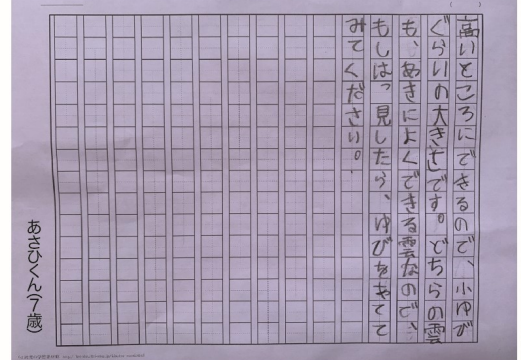 高いところにできるので、小ゆび
ぐらいの大きさです。どちらの雲
も、あきによくできる雲なので、
もしはっ見したら、ゆびをたてて
みてください。
あさひくん(7歳)